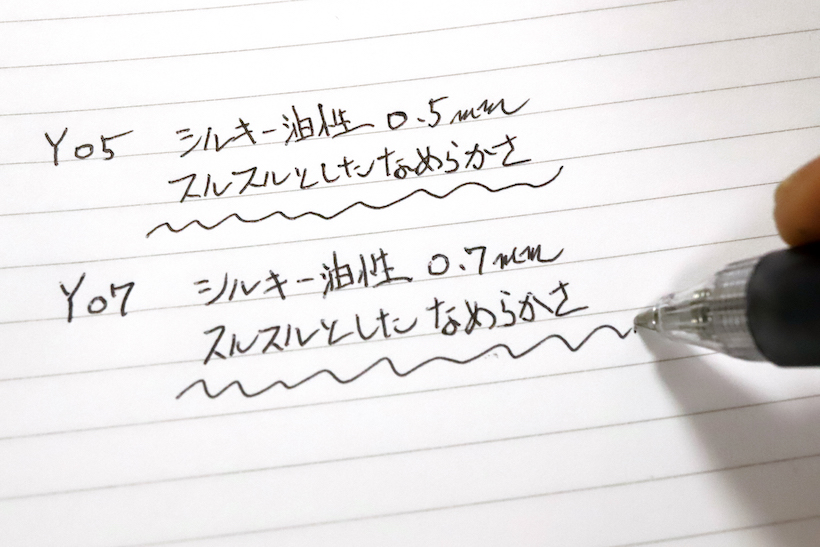 Y05 シルキー油性 0.5mm
スルスルとしたなめらかさ
Y07 シルキー油性 0.7mm
スルスルとしたなめらかさ